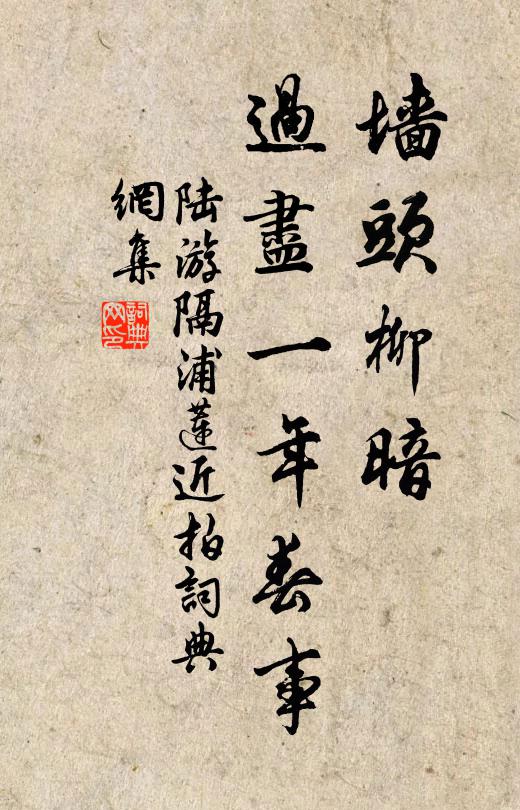 墻頭柳暗
過盡一年春事
陆游隔浦蓮近拍詞典
網集
詞典
网印